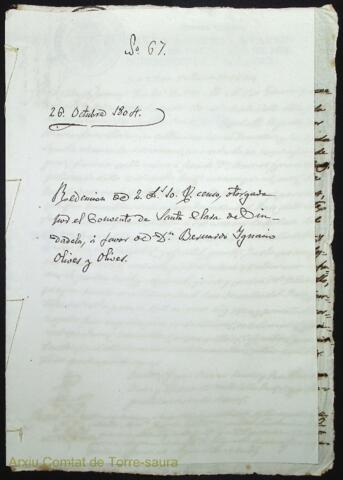 Nº 67.
26. Octubre 1804.
Redencion de 2. 10. censo, otorgada
por el Convento de Santa Clara de Ciu-
dadela, á favor de Dn. Bernardo Ignacio
Olives y Olives.
Arxiu Comtat de Torre-saura